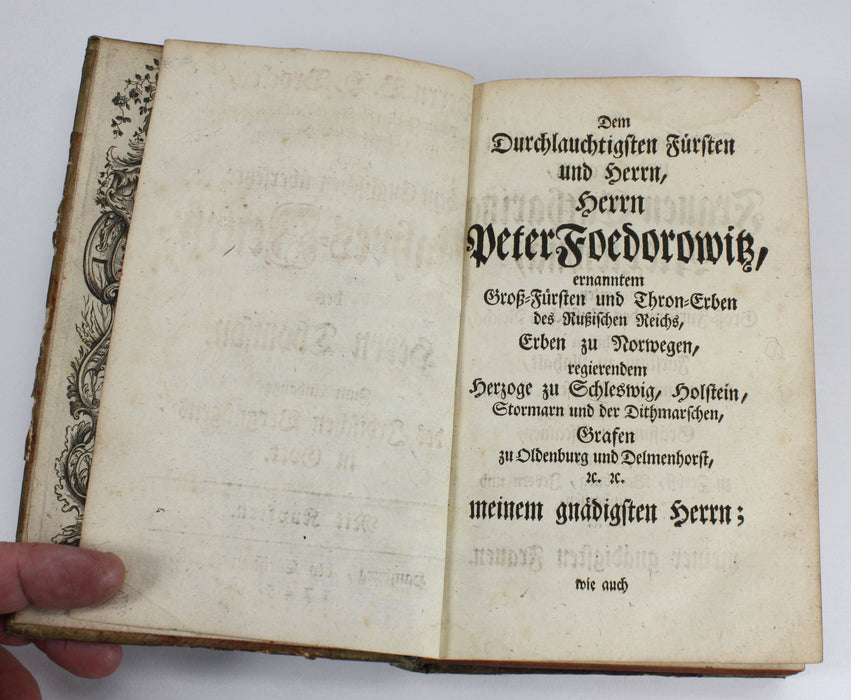 Dem
Durchlauchtigsten Fürsten
und Herrn,
Herrn
Peter Foedorowitz,
ernanntem
Groß-Fürsten und Thron-Erben
des Rußischen Reichs,
Erben zu Norwegen,
regierendem
Herzoge zu Schleswig, Holstein,
Stormarn und der Dithmarschen,
Grafen
zu Oldenburg und Delmenhorst,
ꝛc. ꝛc.
meinem gnädigsten Herrn;
wie auch